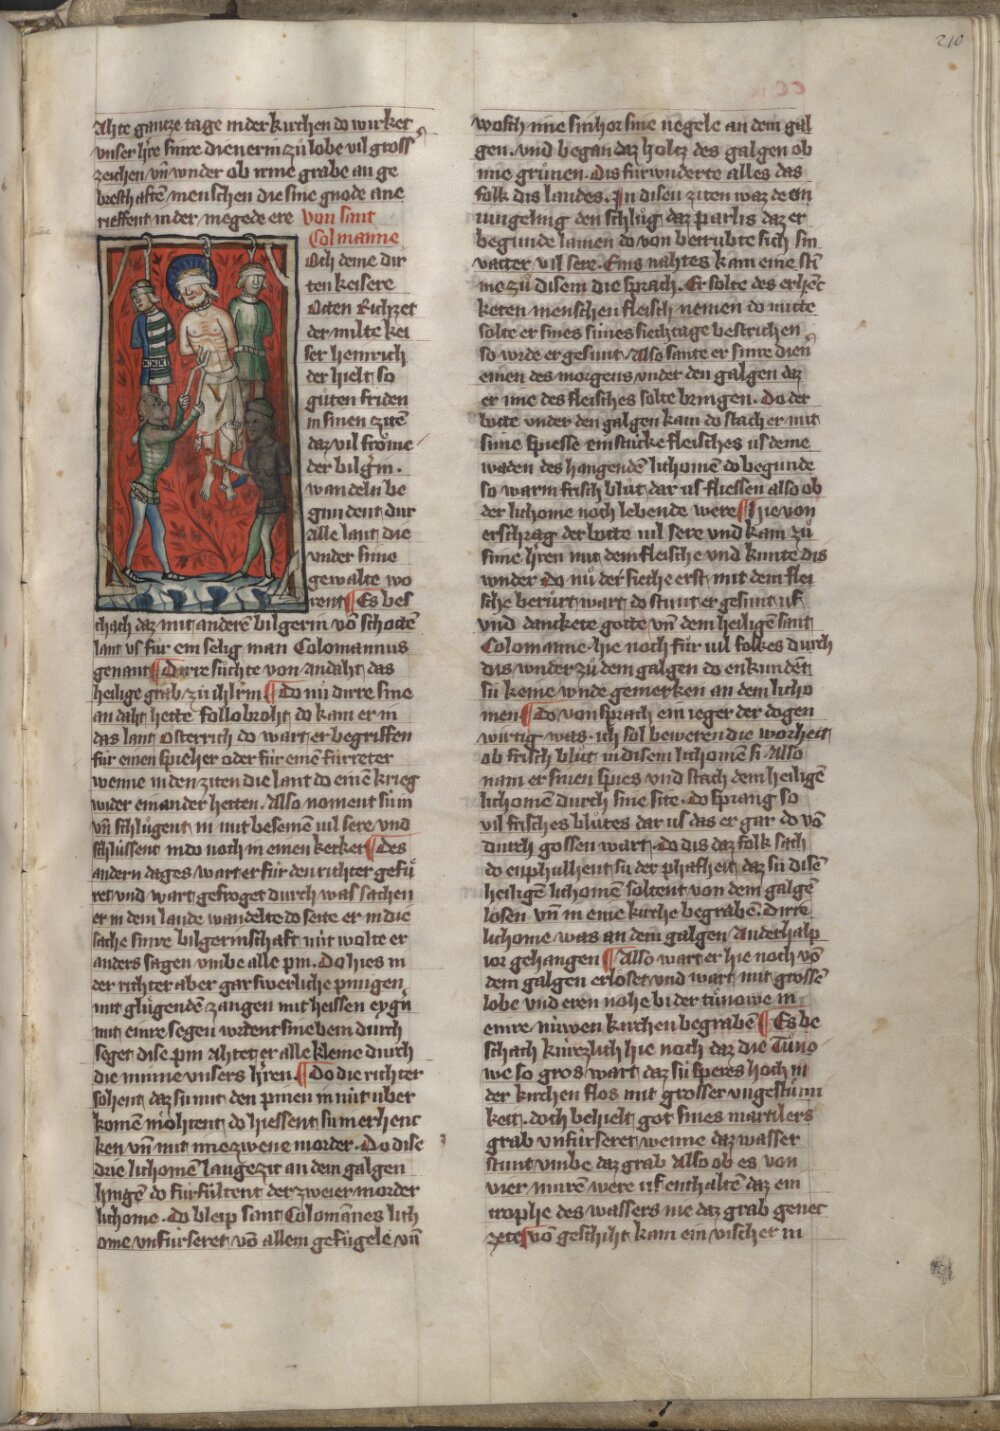 210
Ahte gantze tage in der kirchen do wirket
vnser hre sinre dienerin zuͦ lobe vil gross
zeichen vn̄ wnder ob irme grabe an ge
bresthaften menschen die sine gnode ane
rieffent in der megede ere von sant
Colmanne
Och deme dir
ten keisere
Otten Richzet
der milte kei
ser heinrich
der hielt so
guͦten friden
in sinen zitē
daz vil frome
der bilgrin .
wandeln be
gundent dur
alle lant die
vnder sime
gewalte wo
rent ¶ Es bes
chach daz mit anderē bilgerin vō schottē
lant vs fuͦr ein selig man Colomannus
genant ¶ Dirre suͦchte von andaht das
heilige grab zuͦ ihlrm ¶ Do nuͦ dirre sine
andaht hette follobroht do kam er in
das lant Osterrich do wart er begriffen
fuͤr einen spieher oder fuͤr einē furreter
wenne in den ziten die lant do einē krieg
wider einander hetten . Also noment su in
vn̄ schluͦgent in mit besemē vil sere vnd
schlussent in do noch in einen kerker ¶ Des
andern dages wart er fuͤr den richter gefuͤ
ret vnd wart gefroget durch was sachen
er in dem lande wandelte do seite er in die
sache sinre bilgerinschaft nuͤt wolte er
anders sagen vmbe alle pin . Do hies in
der richter aber gar swerliche pinigen
mit gluͤgendē zangen mit heissen eygn̄
mit einre segen wrdent sine bein durch
seget dise pin ahtet er alle kleine durch
die minne vnsers hren ¶ Do die richter
sohent daz su mit den pinen in nuͤt vber
komē mohtent do hiessent su in erhenc
ken vn̄ mit ime zwene morder . Do dise
drie lichomē lange zit an dem galgen
hingē do furfultent der zweier morder
lichome . do bleip sant Colomānes lich
ome vnfurseret vō allem gefuͤgele vn̄
wosch ime sin hor sine negele an dem gal
gen . vnd began daz holtz des galgen ob
ime gruͤnen . Dis furwnderte alles das
folk dis landes . In disen ziten waz do ein
iungeling den schluͦg daz parlis daz er
begunde lamen do von betrubte sich sin
vatter vil sere . Eins nahtes kam eine stī
me zuͦ disem die sprach . Er solte des erhēc
keten menschen fleisch nemen do mitte
solte er sines sunes siechtage bestrichen
so wrde er gesunt . Also sante er sinre dien̄
einen des morgens vnder den galgen daz
er ime des fleisches solte bringen . Do der
botte vnder den galgen kam do stach er mit
sime spiesse ein stucke fleisches us deme
waden des hangendē lichomē do begunde
so warm frisch bluͦt dar us fliessen also ob
der lichome noch lebende were ¶ Hie von
erschrag der botte vil sere vnd kam zuͦ
sime hren mit dem fleische vnd kunte dis
wnder Do nuͦ der sieche erst mit dem flei
sche beruͤrt wart do stunt er gesunt uf
vnd danckete gotte vn̄ dem heiligē sant
Colomanne . hie noch fuͦr vil folkes durch
dis wnder zuͦ dem galgen do enkundēt
su keine wnde gemerken an dem licho
men ¶ Do von sprach ein ieger der dogen
wirtig was . ich sol beweren die worheit
ob frisch bluͦt in disem lichomē si . Also
nam er sinen spies vnd stach dem heiligē
lichomē durch sine site . do sprang so
vil frisches bluͦtes dar us das er gar do vō
durch gossen wart . Do dis daz folk sach
do enphulhent su der phafheit daz su disē
heiligē lichomē soltent von dem galgē
losen vn̄ in eine kirche begrabē . Dirre
lichome was an dem galgen anderhalp
ior gehangen ¶ Also wart er hie noch vō
dem galgen erloset vnd wart mit grossē
lobe vnd eren nohe bi der tuͦnowe in
einre nuwen kirchen begrabē ¶ Es be
schach kurzlich hie noch daz die Tuͦno
we so gros wart daz su speres hoch in
der kirchen flos mit grosser vngestuͤmi
keit . doch behielt got sines martilers
grab vnfurseret wenne daz wasser
stunt vmbe daz grab also ob es von
vier murē were uf enthaltē daz ein
trophe des wassers nie daz grab genet
zete ¶ vō geschiht kam ein vischer in